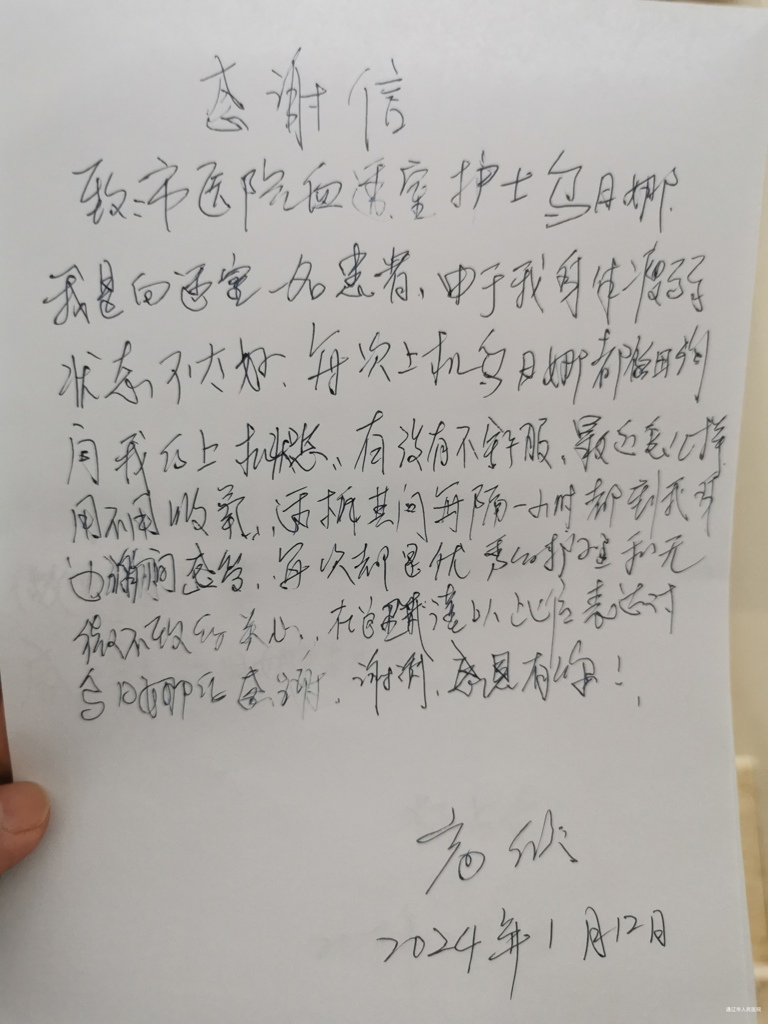 感谢信
致:市医院血透室护士乌日娜.
我是血透室一名患者、由于我身体瘦弱
状态不太好、每次上机乌日娜都会细询
问我的上机状态、有没有不舒服、最近怎么样
用不用吸氧、透析其间每隔一小时都到我身
边询问感觉、每次都是优秀的护理和无
微不致的关心、在这里我谨以此信表达对
乌日娜的感谢、谢谢、感恩有你!
高欣
2024年1月12日
通辽市人民医院